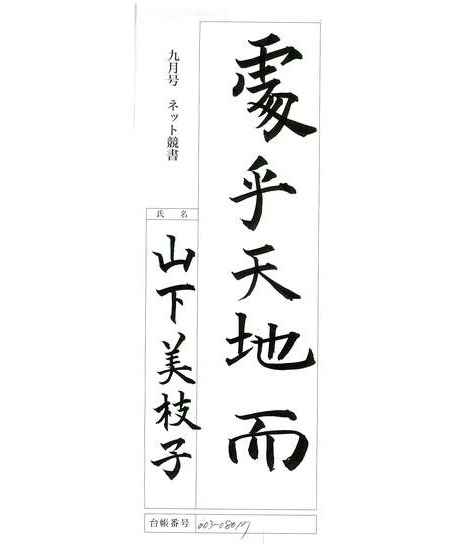 處乎天地而
九月号 ネット競書
氏名
山下美枝子
台帳番号